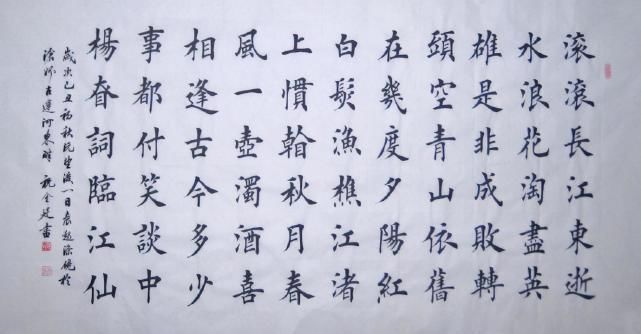 滾滾長江東逝
水浪花淘盡英
雄是非成敗轉
頭空青山依舊
在幾度夕陽紅
白髮漁樵江渚
上慣看秋月春
風一壺濁酒喜
相逢古今多少
事都付笑談中
楊昚詞臨江仙
歲次己丑初秋既望後一日
滄州古運河東畔